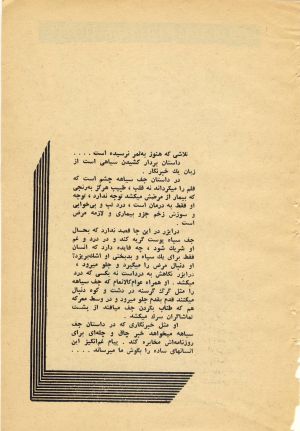 تلاشی که هنوز به‌ثمر نرسیده است . . . .
داستان بردار کشیدن سیاهی است از
زبان یك خبرنگار .
در داستان جف سیاهه چشم است که
قلم را میگرداند نه قلب ، طبیب هرگز به‌رنجی
که بیمار از مرضش میکشد توجه ندارد ، توجه
او فقط به درمان است ، درد تب و بی‌خوابی
و سوزش زخم جزو بیماری و لازمه مرض
است .
درایزر در این جا قصد ندارد که بحال
جف سیاه پوست گریه کند و در درد و غم
او شریك شود ، چه فایده دارد که انسان
فقط برای یك سیاه و بدبختی او اشك‌بریزد؟
او دنبال مرض را میگیرد و جلو میرود ،
درایزر نگاهش به درداست نه بکسی که درد
میکشد . او همراه عوام‌کالانعام که جف سیاهه
را مثل گرگ گرسنه در دشت و کوه دنبال
میکنند قدم بقدم جلو میرود و در وسط معرکه
هم که طناب بگردن جف میافتد از پشت
تماشاگران سرك میکشد .
او مثل خبرنگاری که در داستان جف
سیاهه میخواهد خبر چاق و چله‌ای برای
روزنامه‌اش مخابره کند . پیام غم‌انگیز این
انسانهای ساده را بگوش ما میرساند . . . .